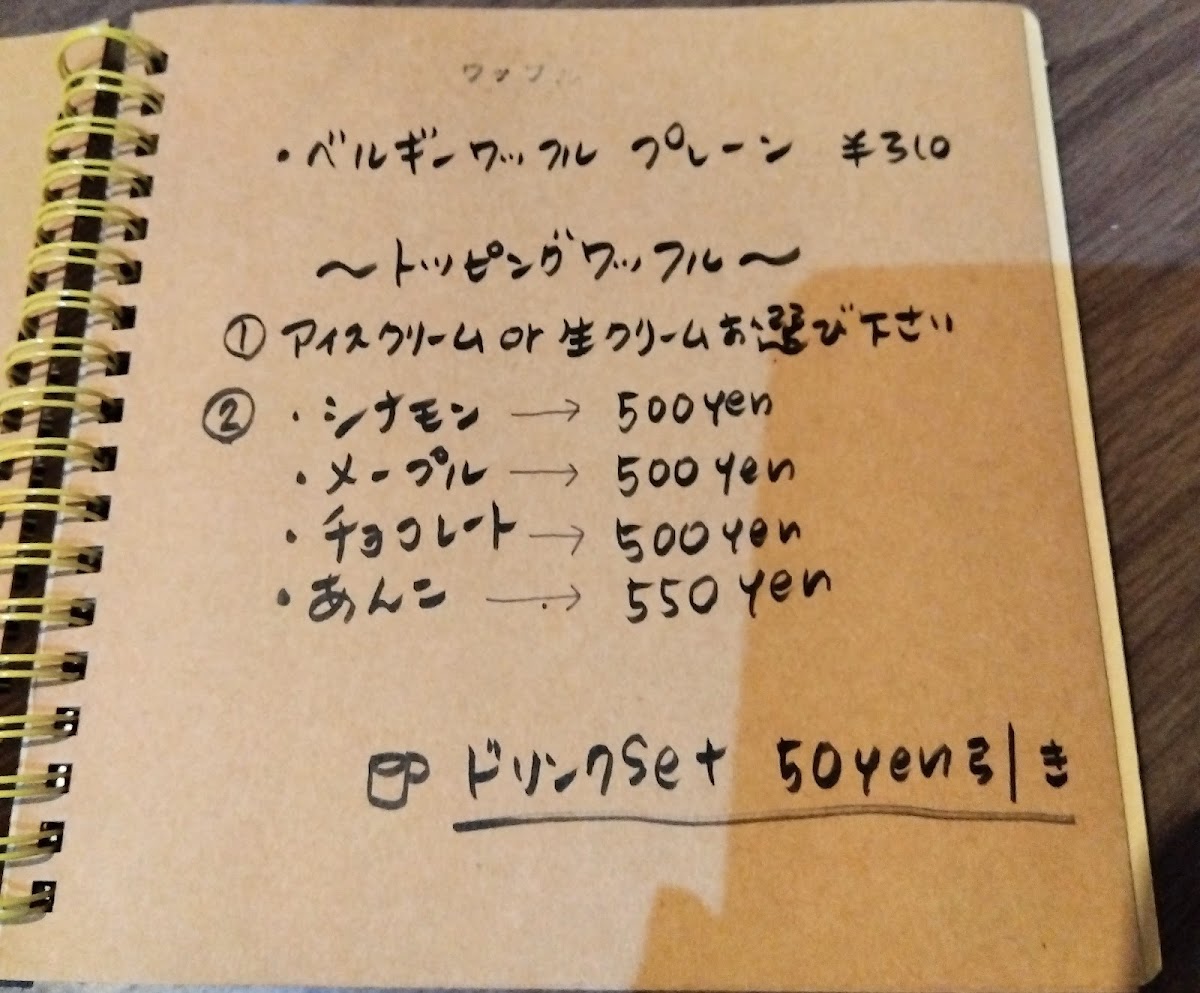 ワッフル
・ベルギーワッフル プレーン ¥310
〜トッピングワッフル〜
① アイスクリーム or 生クリームお選び下さい
② ・シナモン → 500yen
・メープル → 500yen
・チョコレート → 500yen
・あんこ → 550yen
ドリンクset 50yen引き